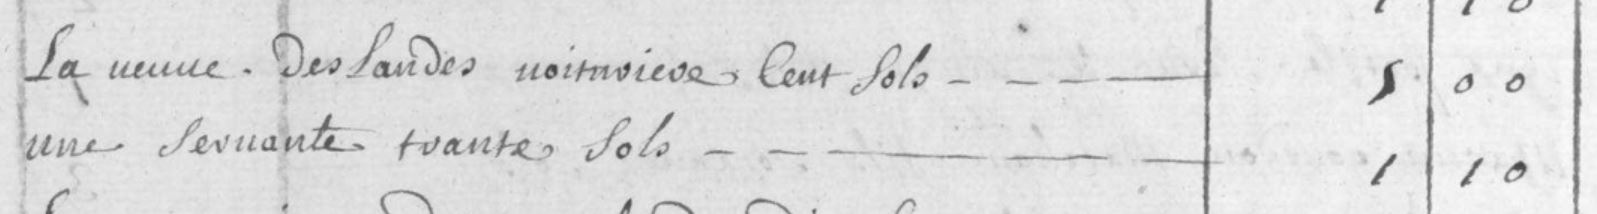 La veuue. Des Landes voituriere Cent sols - - - — 5 00
une servante trante sols - - — 1 10